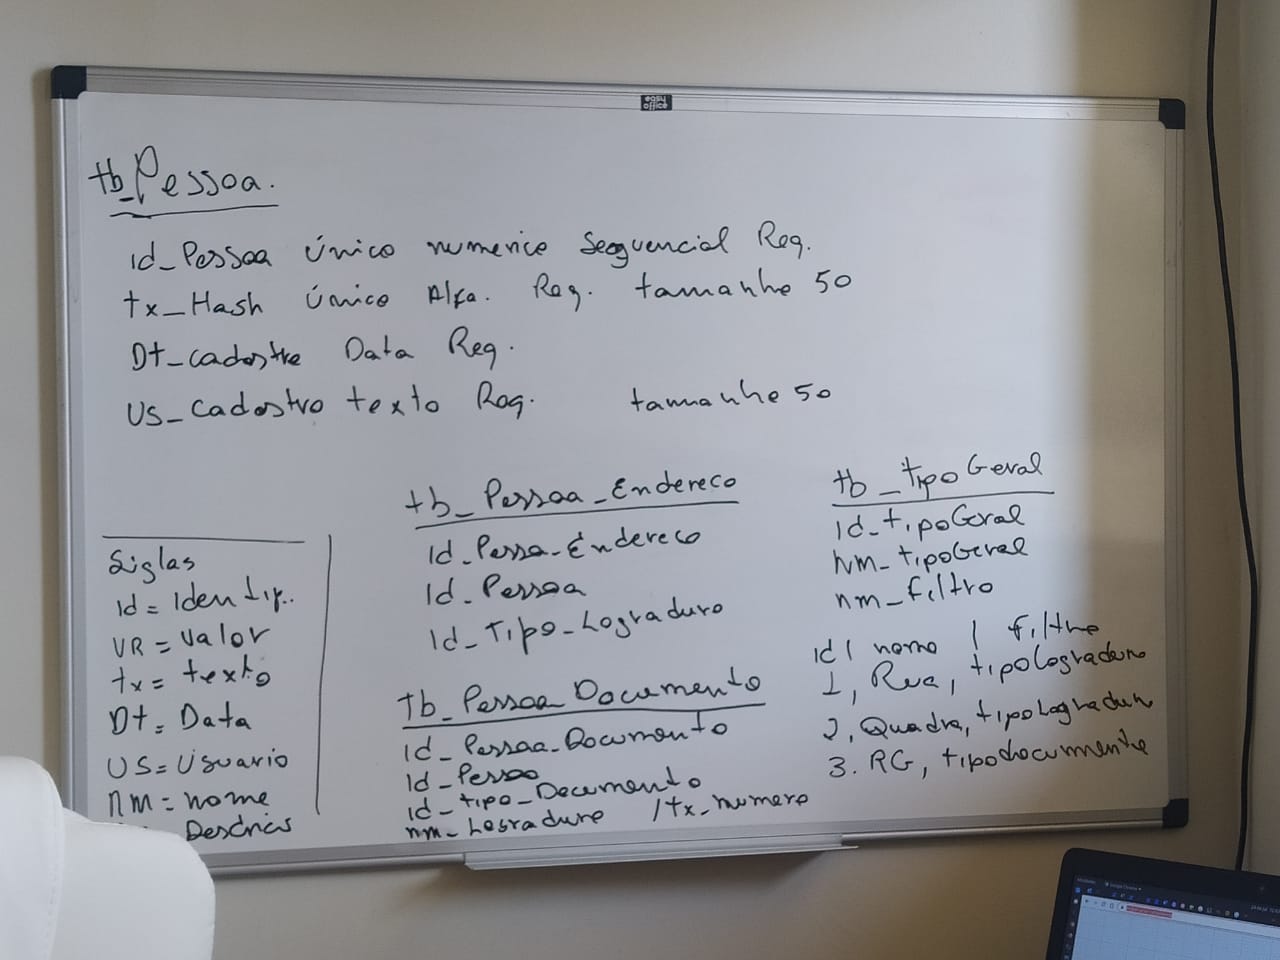 easy office
tb_Pessoa.
id_Pessoa Único numerico Sequencial Req.
tx_Hash Único Alfa. Req. tamanho 50
Dt_cadastro Data Req.
US_Cadastro texto Req. tamanho 50
Siglas
id = Identif..
VR = Valor
tx = texto
Dt = Data
US = Usuario
nm = nome
tb_Pessoa_Endereco
Id_Pessoa_Endereco
Id_Pessoa
Id_Tipo_Logradouro
tb_Pessoa_Documento
Id_Pessoa_Documento
Id_Pessoa
id_tipo_Documento
nm_Logradouro /tx_numero
tb_tipoGeral
id_tipoGeral
Nm_tipoGeral
nm_filtro
id | nome | filtro
1, Rua, tipoLogradouro
2, Quadra, tipoLogradouro
3. RG, tipodocumento